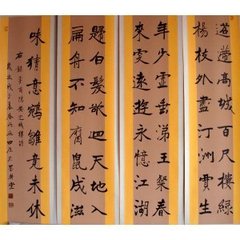 迢遞高城百尺樓綠
楊枝外盡汀洲賈生
年少虛垂涕王粲春
來更遠遊永憶江湖
歸白髮欲迴天地入
扁舟不知腐鼠成滋
味猜意鵷雛竟未休
右錄李商隱安定城樓詩